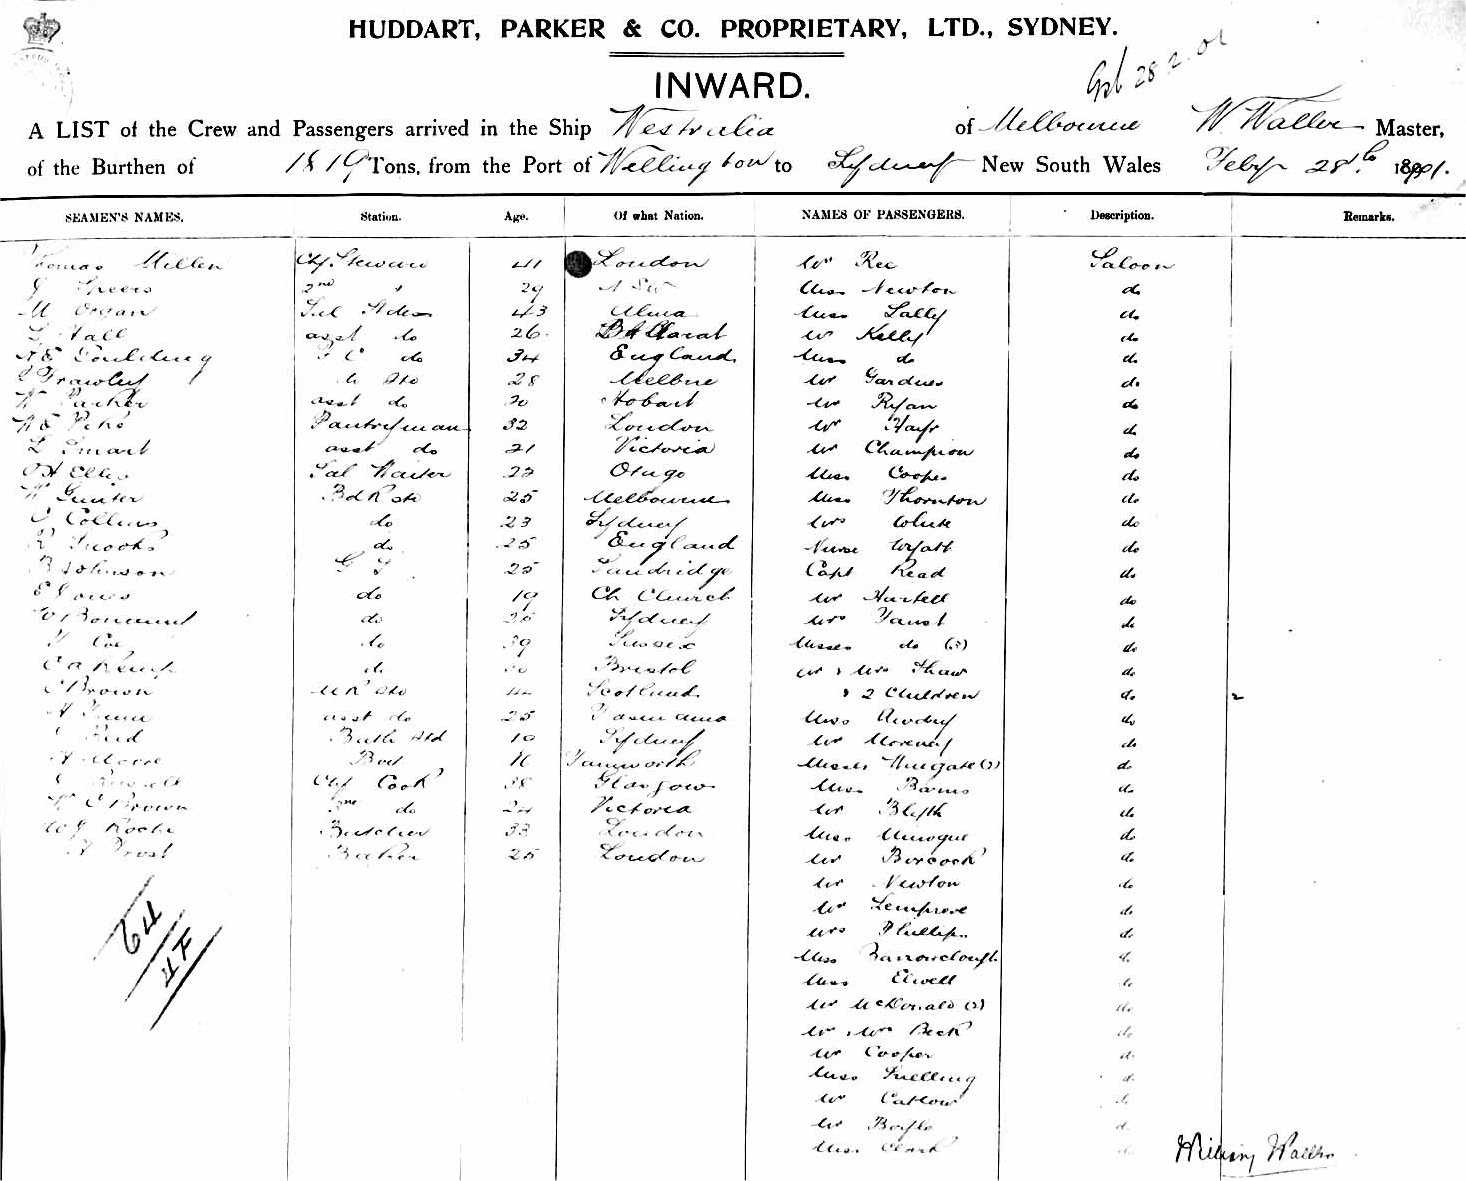 HUDDART, PARKER & CO. PROPRIETARY, LTD., SYDNEY.
INWARD.
28.2.01
A LIST of the Crew and Passengers arrived in the Ship Westralia of Melbourne W Waller Master,
of the Burthen of 1819 Tons, from the Port of Wellington to Sydney New South Wales Feby 28th 1901.
SEAMEN'S NAMES. Station. Age. Of what Nation. NAMES OF PASSENGERS. Description. Remarks.
Thomas Millen Chf Steward 41 London Mr Ree Saloon
J Speers 2nd " 29 Miss Newton do
M Organ 43 Alma Miss Lally do
L Hall asst do 26 Ballarat Mr Kelly do
Goulding F C do 34 England Miss do do
Frawley Sto 28 Melbne Mr Gardner do
W Parker asst do 30 Hobart Mr Ryan do
Pantryman 32 London Mr Hayr do
L Smart asst do 21 Victoria Mr Champion do
Ellis Sal Waiter 22 Otago Miss Cooper do
W Gunter B d R Std 25 Melbourne Miss Thornton do
Collins do 23 Sydney Mrs White do
do 25 England Nurse Wyatt do
B Johnson 25 Sandridge Capt Read do
E Jones do 19 Ch Church Mr Hartell do
do 26 Sydney Mrs Faust do
Coe do 39 Sussex Misses do do
C A Kemp do Bristol Mr & Mrs Thaw do
C Brown Std 44 Scotland & 2 Children do 2
asst do 25 Tasmania Miss do
Reid Bath Std 19 Sydney Mr do
Tamworth do
Russell Chf Cook 38 Glasgow Miss Barns do
W C Brown 2nd do 24 Victoria Mr Blyth do
W J Roche Butcher 33 London Miss do
A Frost Baker 25 London Mr Borcock do
Mr Newton do
64
Mr do
4F
Mrs Phillips do
Miss Barrowclough do
Miss Elwell do
Mr McDonald do
Mr & Mrs Beck do
Mr Cooper do
Miss Snelling do
Mr Catlow do
Mr Boyle do
Miss Clark do
William Waller